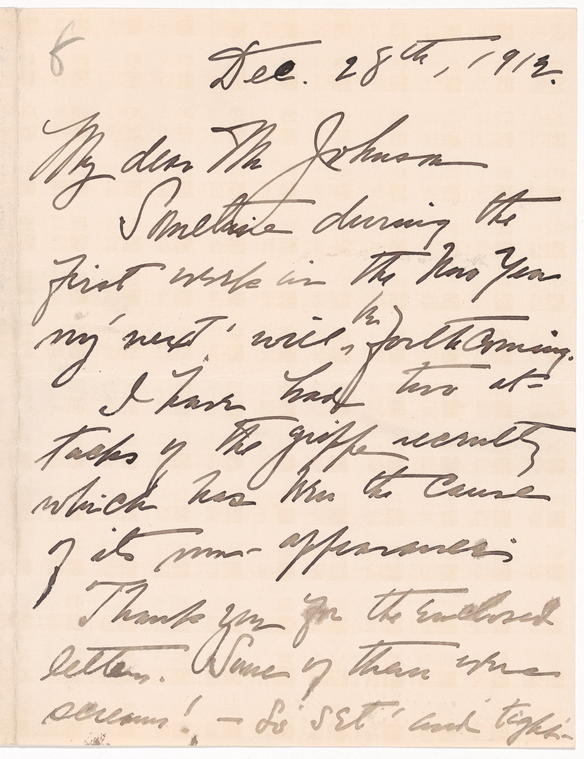 8
Dec. 28th, 1912.
My dear Mr Johnson
Sometime during the
first week in the New Year
my 'next' will be forthcoming.
I have had two at-
tacks of the grippe recently
which has been the cause
of its non-appearance
Thank you for the enclosed
letters. Some of them were
screams! – So 'set' and tight-